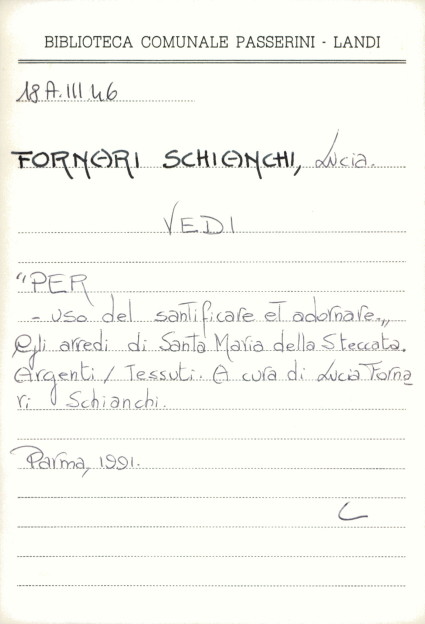 BIBLIOTECA COMUNALE PASSERINI - LANDI
18 A.III.46
FORNARI SCHIANCHI, Lucia.
VEDI
"PER
- uso del santificare et adornare.,,
Gli arredi di Santa Maria della Steccata.
Argenti / Tessuti. A cura di Lucia Forna
ri Schianchi.
Parma, 1991.
C